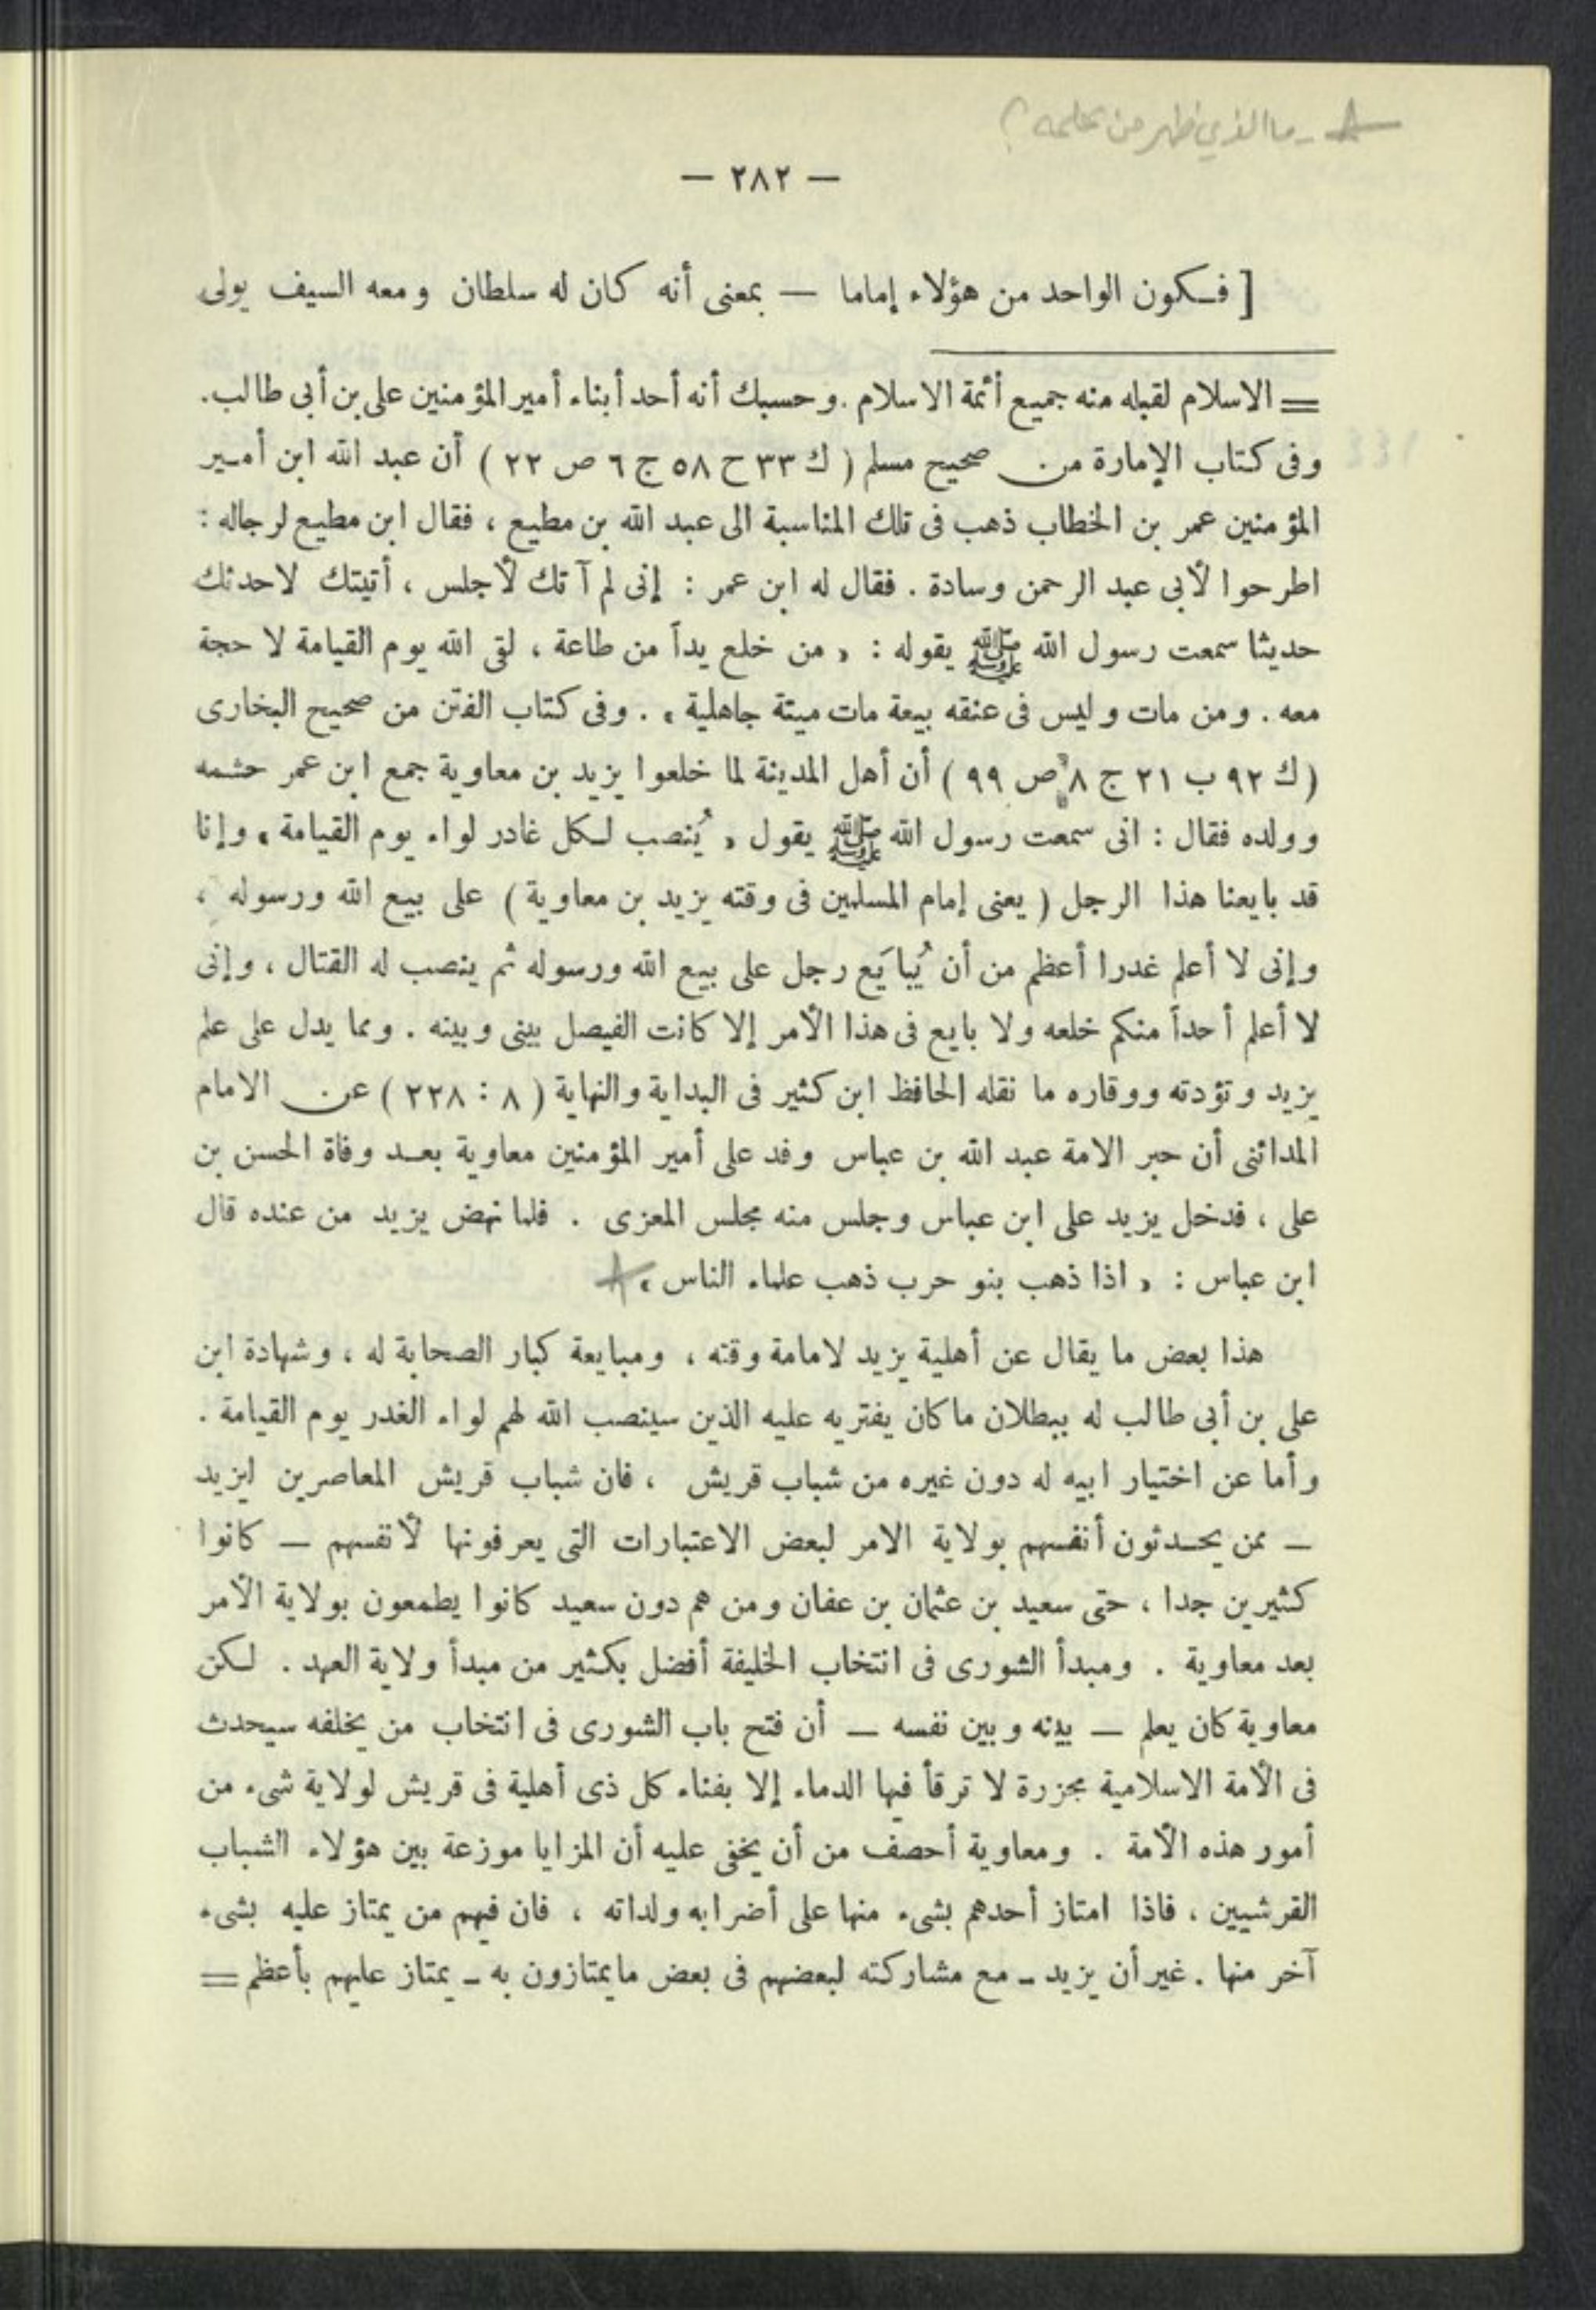 ما الذي ظهر من علمه ؟
— ٢٨٢ —
[ فـكون الواحد من هؤلاء إماما — بمعنى أنه كان له سلطان ومعه السيف يولى
= الاسلام لقبله منه جميع أئمة الاسلام . وحسبك أنه أحد أبناء أمير المؤمنين على بن أبى طالب .
وفى كتاب الإمارة من صحيح مسلم ( ك ٣٣ ح ٥٨ ج ٦ ص ٢٢ ) أن عبد الله ابن أمير
المؤمنين عمر بن الخطاب ذهب فى تلك المناسبة الى عبد الله بن مطيع ، فقال ابن مطيع لرجاله :
اطرحوا لأبى عبد الرحمن وسادة . فقال له ابن عمر : إنى لم آتك لأجلس ، أتيتك لاحدثك
حديثا سمعت رسول الله ﷺ يقوله : « من خلع يداً من طاعة ، لقى الله يوم القيامة لا حجة
معه . ومن مات وليس فى عنقه بيعة مات ميتة جاهلية » . وفى كتاب الفتن من صحيح البخارى
( ك ٩٢ ب ٢١ ج ٨ ص ٩٩ ) أن أهل المدينة لما خلعوا يزيد بن معاوية جمع ابن عمر حشمه
وولده فقال : انى سمعت رسول الله ﷺ يقول « يُنصب لكل غادر لواء يوم القيامة » وإنا
قد بايعنا هذا الرجل ( يعنى إمام المسلمين فى وقته يزيد بن معاوية ) على بيع الله ورسوله ،
وإنى لا أعلم غدرا أعظم من أن يُبايَع رجل على بيع الله ورسوله ثم ينصب له القتال ، وإنى
لا أعلم أحداً منكم خلعه ولا بايع فى هذا الأمر إلا كانت الفيصل بينى وبينه . ومما يدل على علم
يزيد وتؤدته ووقاره ما نقله الحافظ ابن كثير فى البداية والنهاية ( ٨ : ٢٢٨ ) عن الامام
المدائنى أن حبر الامة عبد الله بن عباس وفد على أمير المؤمنين معاوية بعد وفاة الحسن بن
على ، فدخل يزيد على ابن عباس وجلس منه مجلس المعزى . فلما نهض يزيد من عنده قال
ابن عباس : « اذا ذهب بنو حرب ذهب علماء الناس »
هذا بعض ما يقال عن أهلية يزيد لامامة وقته ، ومبايعة كبار الصحابة له ، وشهادة ابن
على بن أبى طالب له ببطلان ما كان يفتريه عليه الذين سينصب الله لهم لواء الغدر يوم القيامة .
وأما عن اختيار ابيه له دون غيره من شباب قريش ، فان شباب قريش المعاصرين ليزيد
— ممن يحدثون أنفسهم بولاية الامر لبعض الاعتبارات التى يعرفونها لأنفسهم — كانوا
كثيرين جدا ، حتى سعيد بن عثمان بن عفان ومن هم دون سعيد كانوا يطمعون بولاية الأمر
بعد معاوية . ومبدأ الشورى فى انتخاب الخليفة أفضل بكثير من مبدأ ولاية العهد . لكن
معاوية كان يعلم — بينه وبين نفسه — أن فتح باب الشورى فى انتخاب من يخلفه سيحدث
فى الأمة الاسلامية مجزرة لا ترقأ فيها الدماء إلا بفناء كل ذى أهلية فى قريش لولاية شىء من
أمور هذه الأمة . ومعاوية أحصف من أن يخفى عليه أن المزايا موزعة بين هؤلاء الشباب
القرشيين ، فاذا امتاز أحدهم بشىء منها على أضرابه ولداته ، فان فيهم من يمتاز عليه بشىء
آخر منها . غير أن يزيد — مع مشاركته لبعضهم فى بعض ما يمتازون به — يمتاز عليهم بأعظم =